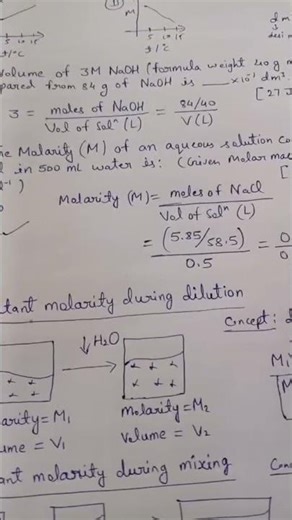 M
5 10 15
t/°C
5 10 15
t/°C
Volume of 3M NaOH (formula weight 40 g m
pared from 84 g of NaOH is ___ ×10¹ dm³.
[27 J
3 = moles of NaOH / Vol of Solⁿ (L) = 84/40 / V(L)
he Molarity (M) of an aqueous solution co
in 500 mL water is: (Given Molar mas
Molarity (M) = moles of NaCl / Vol of Solⁿ (L)
= (5.85/58.5) / 0.5 = 0
tant molarity during dilution
Concept:
↓H₂O
arity = M₁
Molarity = M₂
ume = V₁
Volume = V₂
ant molarity during mixing
Conc